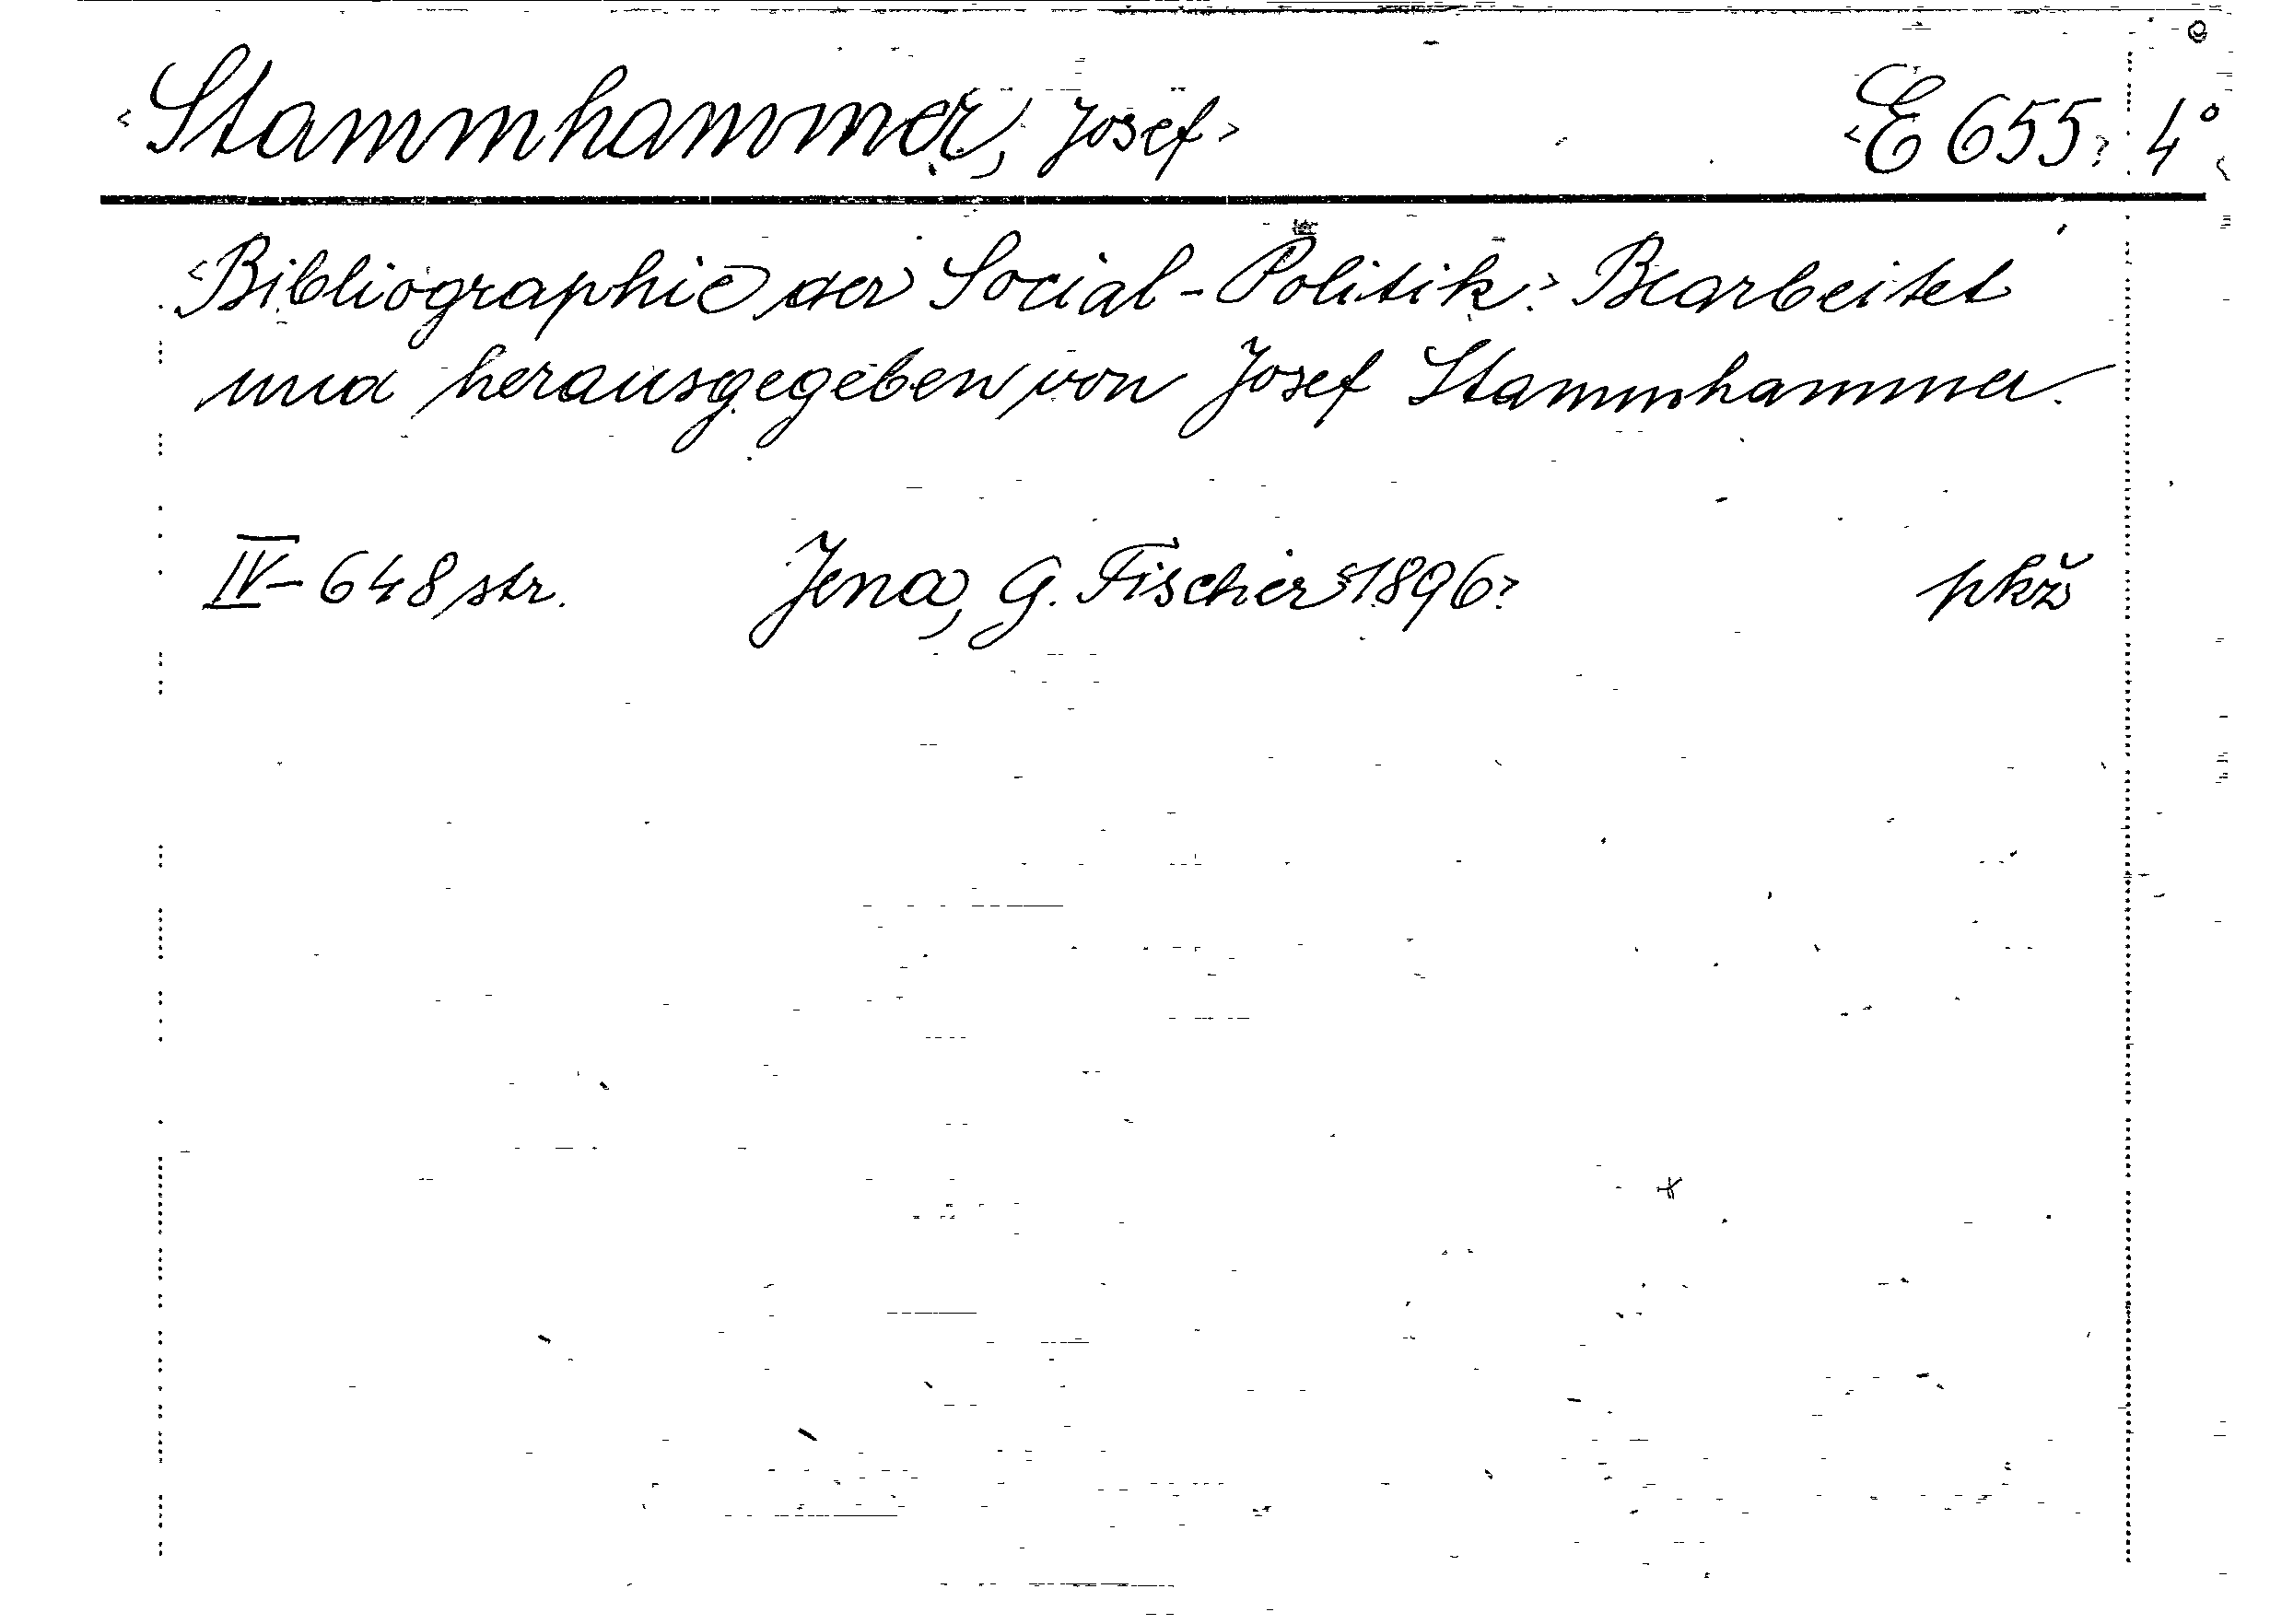 ‹Stammhammer, Josef› ‹E 655› 4°
‹Bibliographie der Social-Politik.› Bearbeitet
und herausgegeben von Josef Stammhammer.
IV-648 str. Jena, G. Fischer ‹1896› pkž